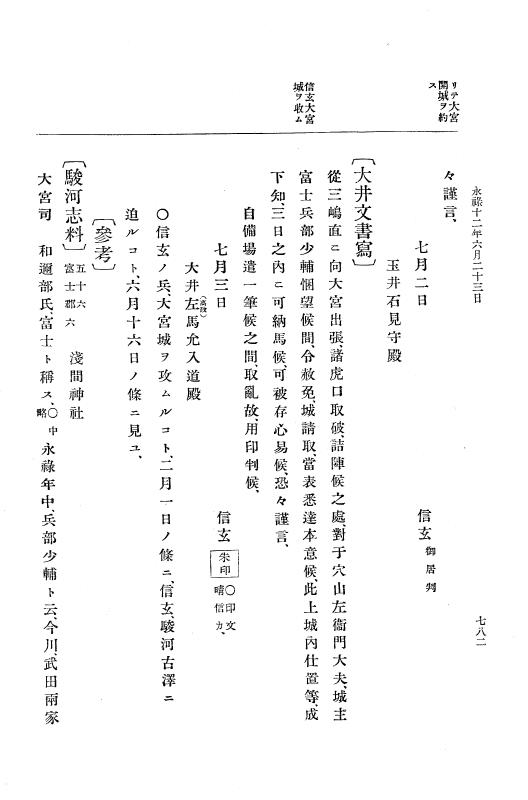 永祿十二年六月二十三日
七八二
リテ大宮
開城ヲ約
ス
信玄大宮
城ヲ收ム
々謹言、
七月二日
信玄 御居判
玉井石見守殿
〔大井文書寫〕
從三嶋直ニ向大宮出張、諸虎口取破、詰陣候之處、對于穴山左衞門大夫、城主
富士兵部少輔悃望候間、令赦免、城請取、當表悉達本意候、此上城內仕置等、成
下知、三日之內ニ可納馬候、可被存心易候、恐々謹言、
自備場遣一筆候之間、取亂故、用印判候、
七月三日
信玄 朱印 〇印文晴信カ、
大井左馬允入道殿
〇信玄ノ兵、大宮城ヲ攻ムルコト、二月一日ノ條ニ、信玄、駿河古澤ニ
迫ルコト、六月十六日ノ條ニ見ユ、
〔參考〕
〔駿河志料〕 五十六 富士郡六 淺間神社
大宮司 和邇部氏、富士ト稱ス、〇中略 永祿年中、兵部少輔ト云今川、武田兩家